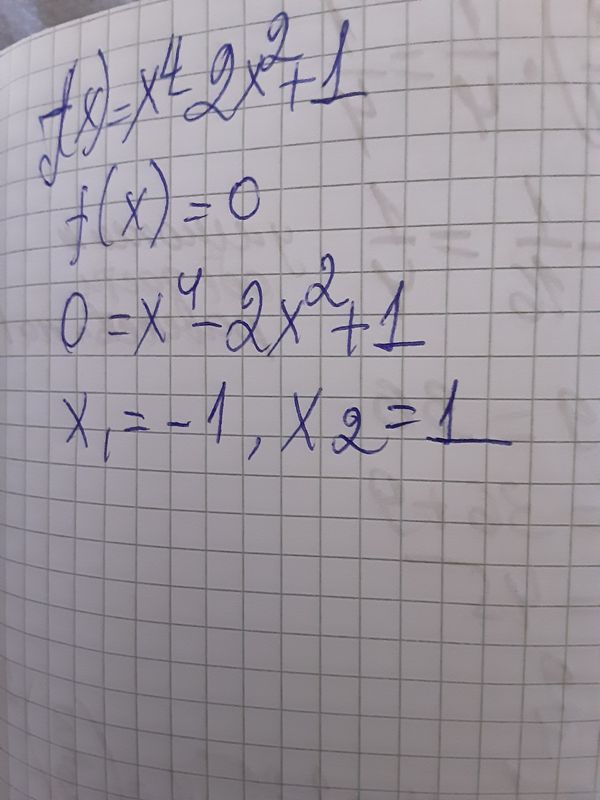 f(x)=x⁴-2x²+1
f(x)=0
0=x⁴-2x²+1
x₁=-1, x₂=1